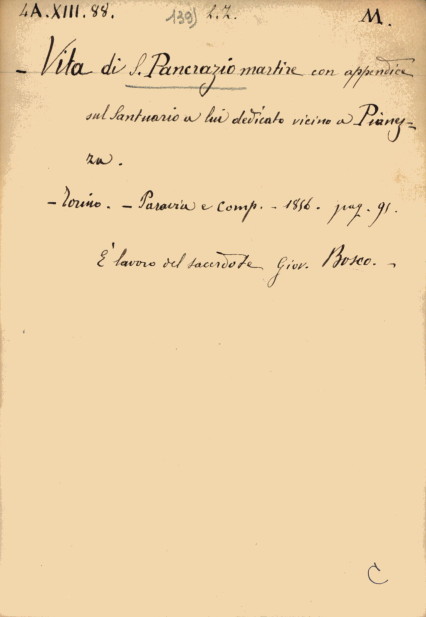 4A.XIII.88. 139) L.Z. M.
- Vita di S. Pancrazio martire con appendice
sul Santuario a lui dedicato vicino a Pianez=
za.
- Torino. - Paravia e comp. - 1856. pag. 91.
È lavoro del sacerdote Giov. Bosco. -
C